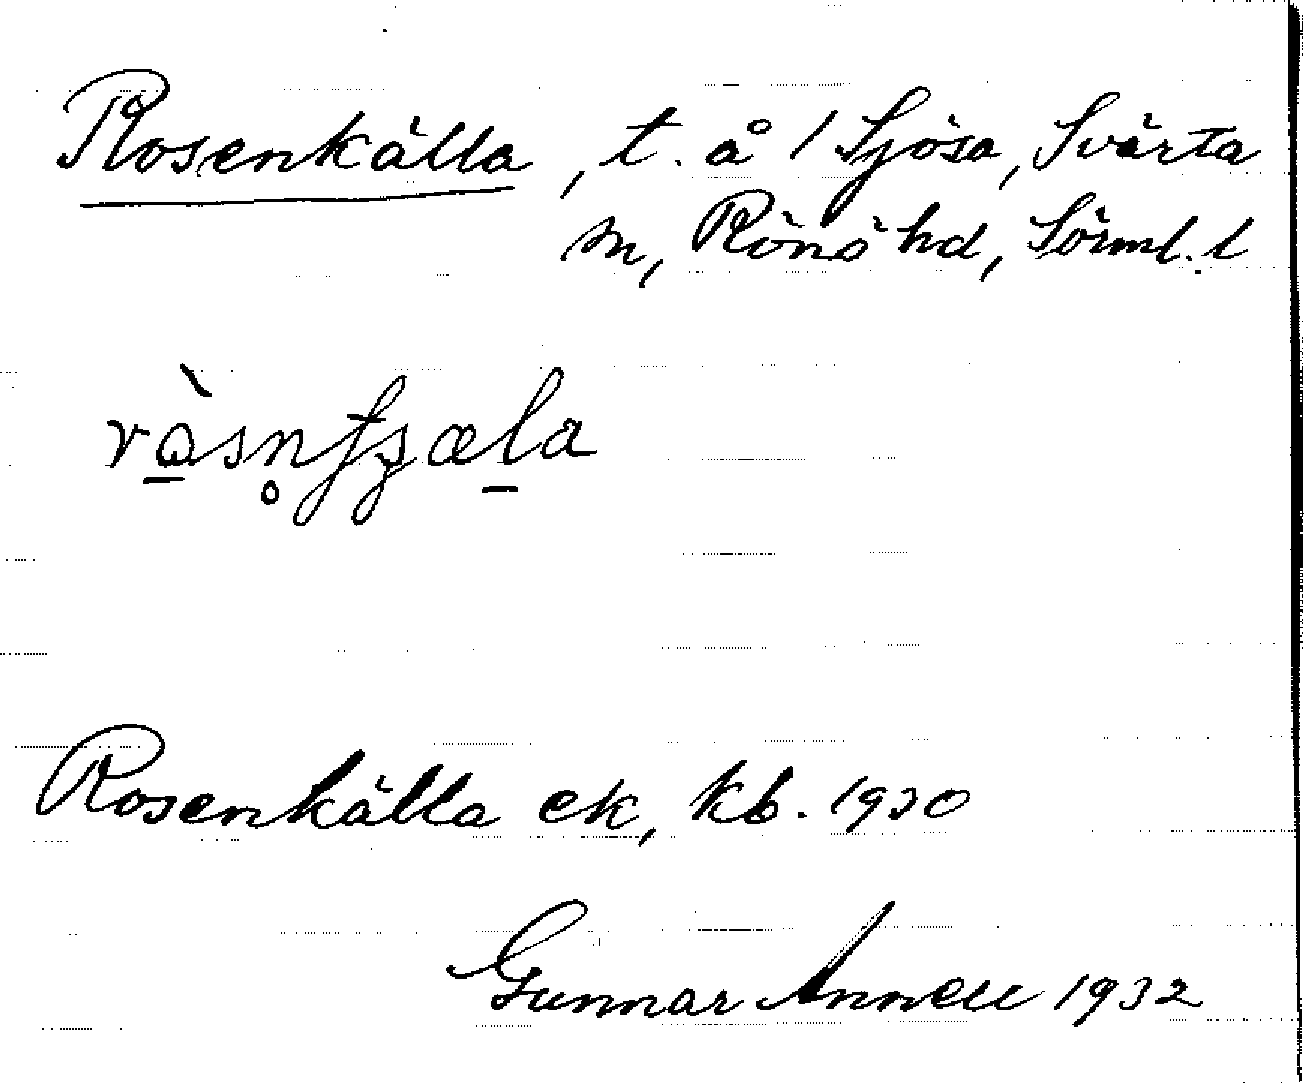 Rosenkälla, t. å / Sjösa, Svärta
sn, Rönö hd, Sörml. l
Rosenkälla ek, kb. 1930
Gunnar Annell 1932